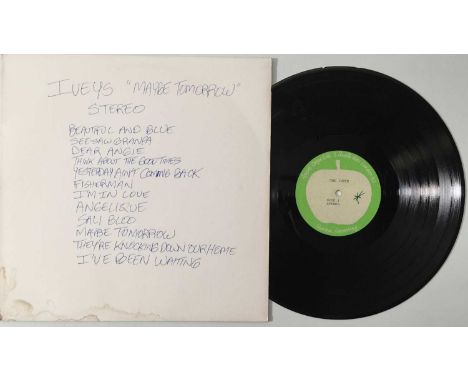 IVEYS "MAYBE TOMORROW"
STEREO
BEAUTIFUL AND BLUE
SEESAW GRANPA
DEAR ANGIE
THINK ABOUT THE GOOD TIMES
YESTERDAY AIN'T COMING BACK
FISHERMAN
I'M IN LOVE
ANGELIQUE
SALI BLOO
MAYBE TOMORROW
THEY'RE KNOCKING DOWN OUR HOME
I'VE BEEN WAITING
THE IVEYS
SIDE 1
STEREO